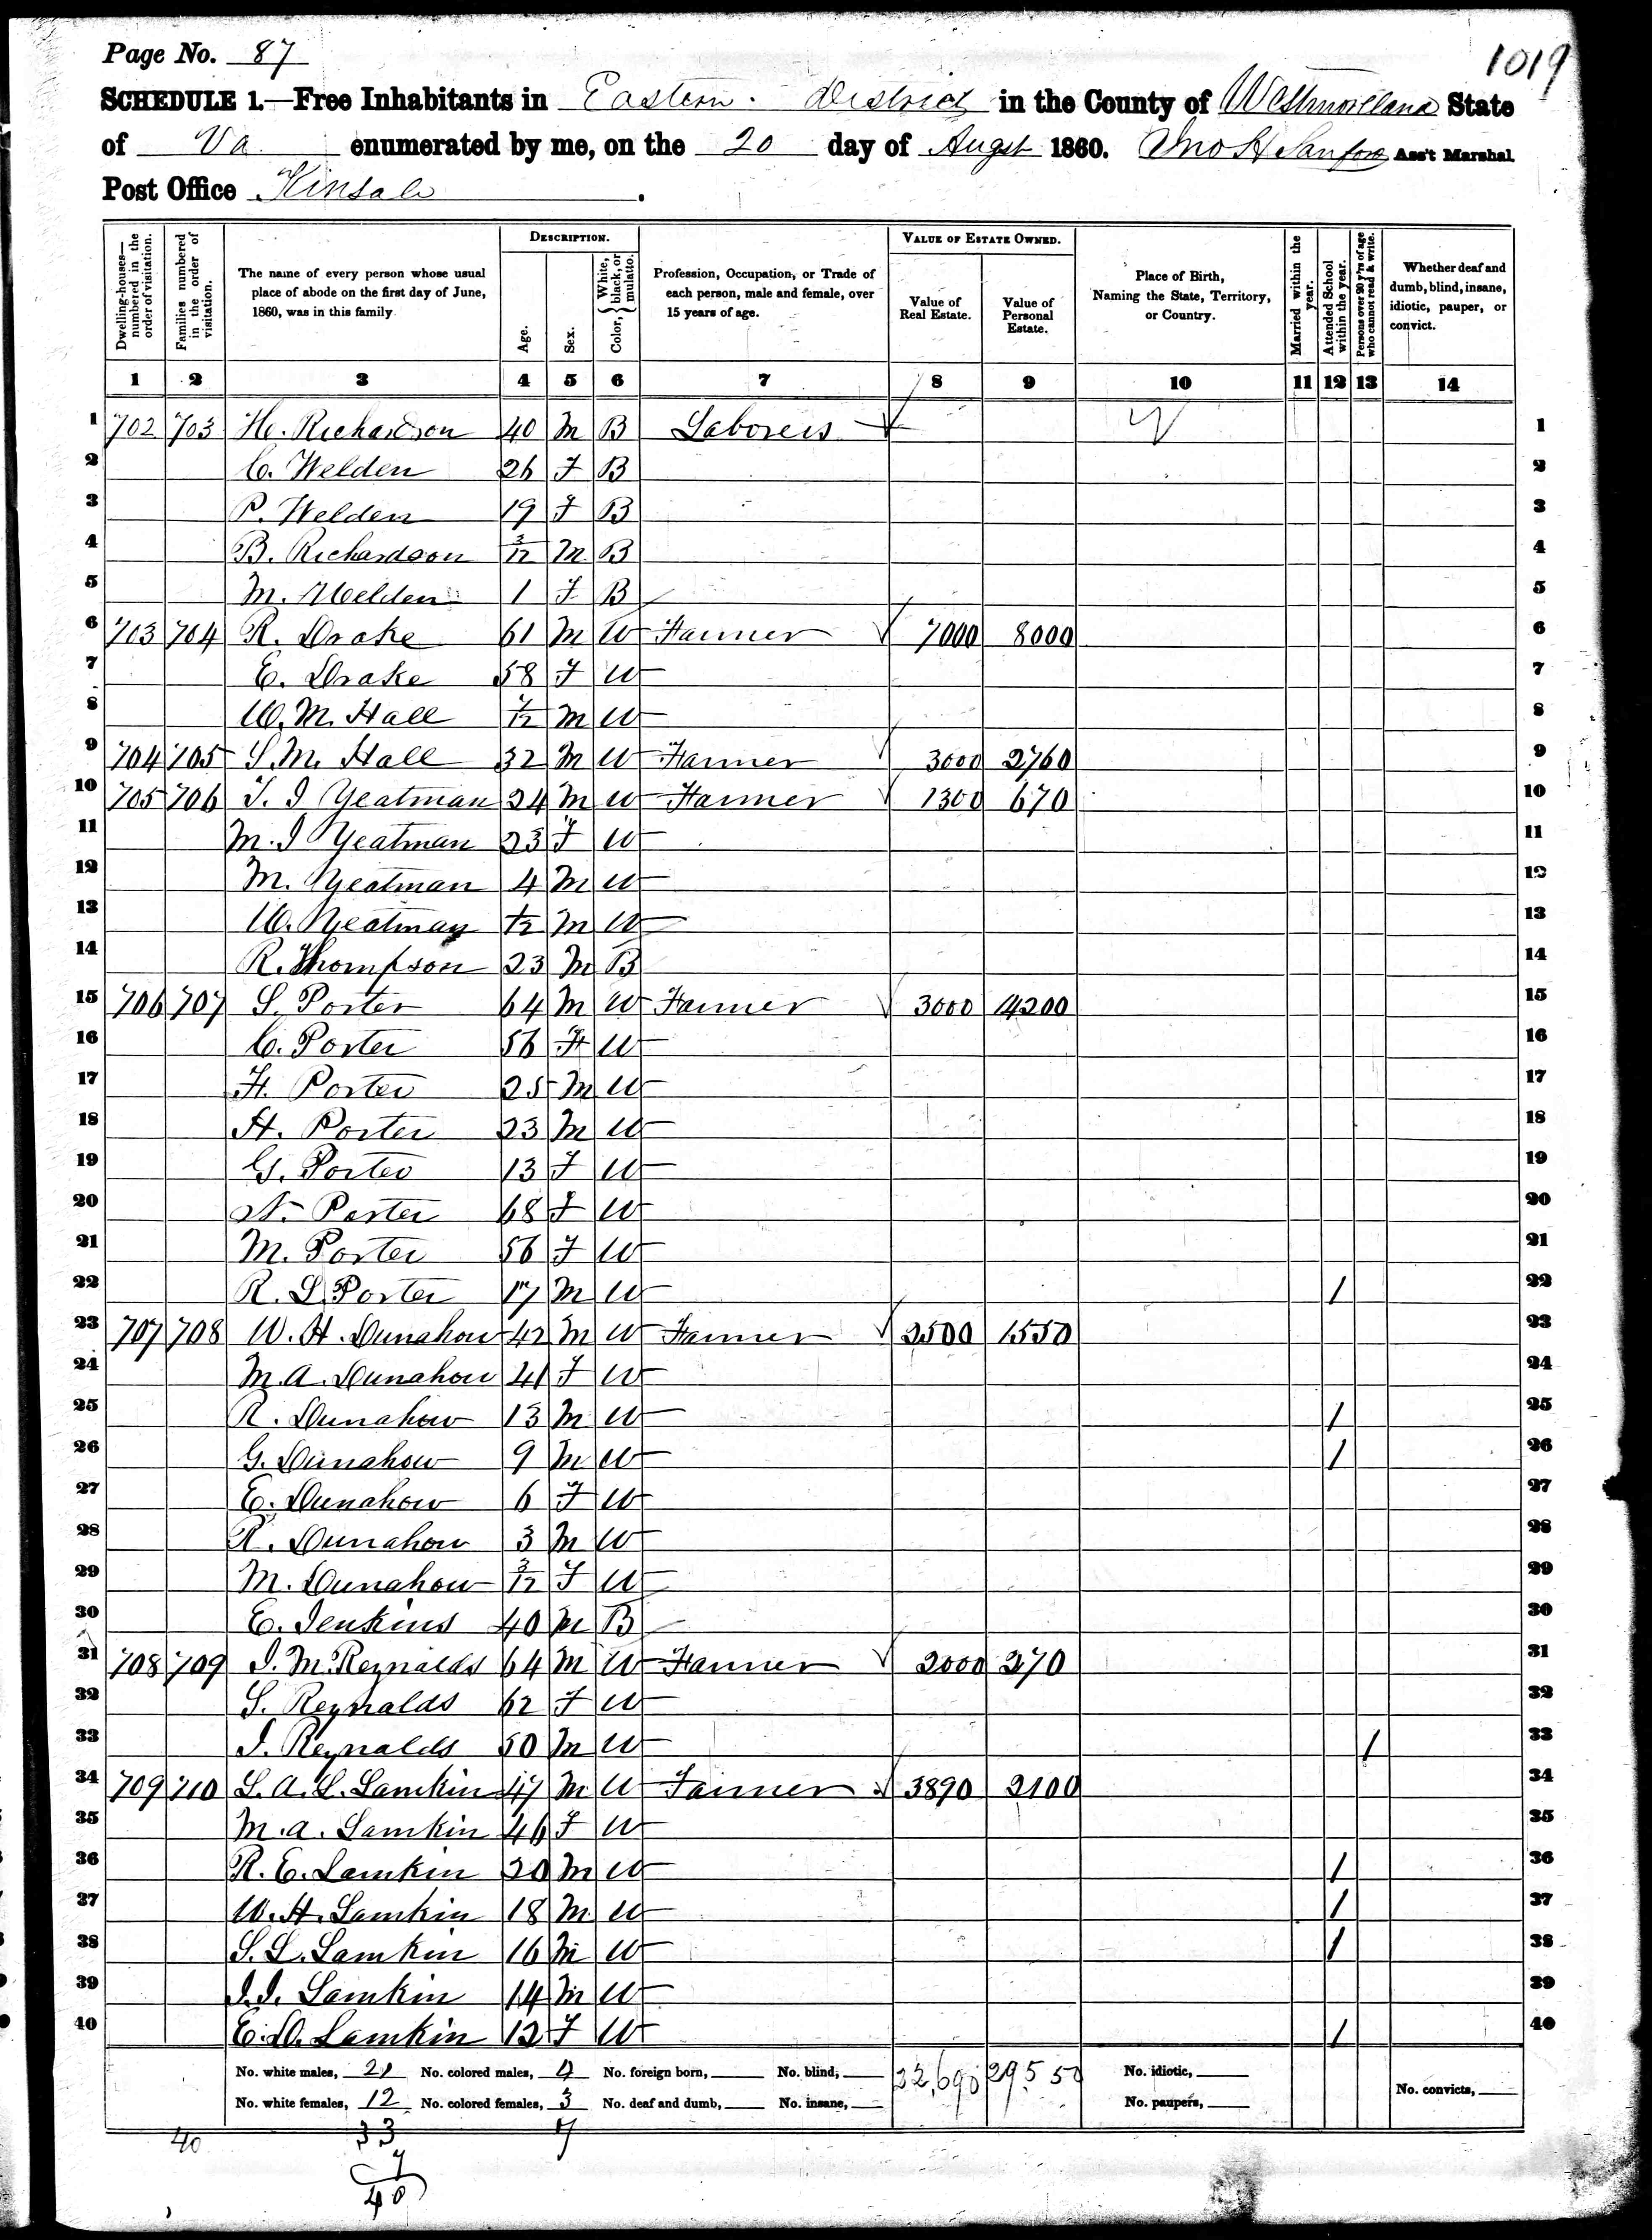 1019
Page No. 87
SCHEDULE 1.—Free Inhabitants in Eastern District in the County of Westmorelland State
of Va enumerated by me, on the 20 day of Augst 1860. Jno H Sanford Ass't Marshal.
Post Office Kinsale .
DESCRIPTION. VALUE OF ESTATE OWNED.
Dwelling-houses—numbered in the order of visitation.
Families numbered in the order of visitation.
The name of every person whose usual place of abode on the first day of June, 1860, was in this family
Age.
Sex.
Color, { White, black, or mulatto.
Profession, Occupation, or Trade of each person, male and female, over 15 years of age.
Value of Real Estate.
Value of Personal Estate.
Place of Birth, Naming the State, Territory, or Country.
Married within the year.
Attended School within the year.
Persons over 20 y'rs of age who cannot read & write.
Whether deaf and dumb, blind, insane, idiotic, pauper, or convict.
1 2 3 4 5 6 7 8 9 10 11 12 13 14
1 702 703 H. Richardson 40 M B Laborers 1
2 C. Welden 26 F B 2
3 P. Welden 19 F B 3
4 B. Richardson 3/12 M B 4
5 M. Welden 1 F B 5
6 703 704 R. Drake 61 M W Farmer 7000 8000 6
7 E. Drake 58 F W 7
8 W. M. Hall /12 M W 8
9 704 705 S. M. Hall 32 M W Farmer 3000 2760 9
10 705 706 T. J Yeatman 24 M W Farmer 1300 670 10
11 M. J Yeatman 23 F W 11
12 M. Yeatman 4 M W 12
13 W. Yeatman 1/12 M W 13
14 R. Thompson 23 M B 14
15 706 707 S. Porter 64 M W Farmer 3000 14200 15
16 C. Porter 56 F W 16
17 F. Porter 25 M W 17
18 H. Porter 23 M W 18
19 G. Porter 13 F W 19
20 N. Porter 68 F W 20
21 M. Porter 56 F W 21
22 R. L Porter 17 M W / 22
23 707 708 W. H. Dunahow 42 M W Farmer 2500 1550 23
24 M. A. Dunahow 41 F W 24
25 R. Dunahow 13 M W / 25
26 G. Dunahow 9 M W / 26
27 E. Dunahow 6 F W 27
28 R. Dunahow 3 M W 28
29 M. Dunahow 3/12 F W 29
30 E. Jenkins 40 M B 30
31 708 709 J. M. Reynalds 64 M W Farmer 2000 270 31
32 S. Reynalds 62 F W 32
33 J. Reynalds 50 M W / 33
34 709 710 L. A. L. Lamkin 47 M W Farmer 3890 2100 34
35 M. A. Lamkin 46 F W 35
36 R. E. Lamkin 20 M W / 36
37 W. H. Lamkin 18 M W / 37
38 S. L. Lamkin 16 M W / 38
39 J. J. Lamkin 14 M W 39
40 E. D. Lamkin 12 F W / 40
No. white males, 21 No. colored males, 4 No. foreign born, No. blind, 22,690 29550 No. idiotic,
No. white females, 12 No. colored females, 3 No. deaf and dumb, No. insane, No. paupers, No. convicts,
40 33 7
7
40